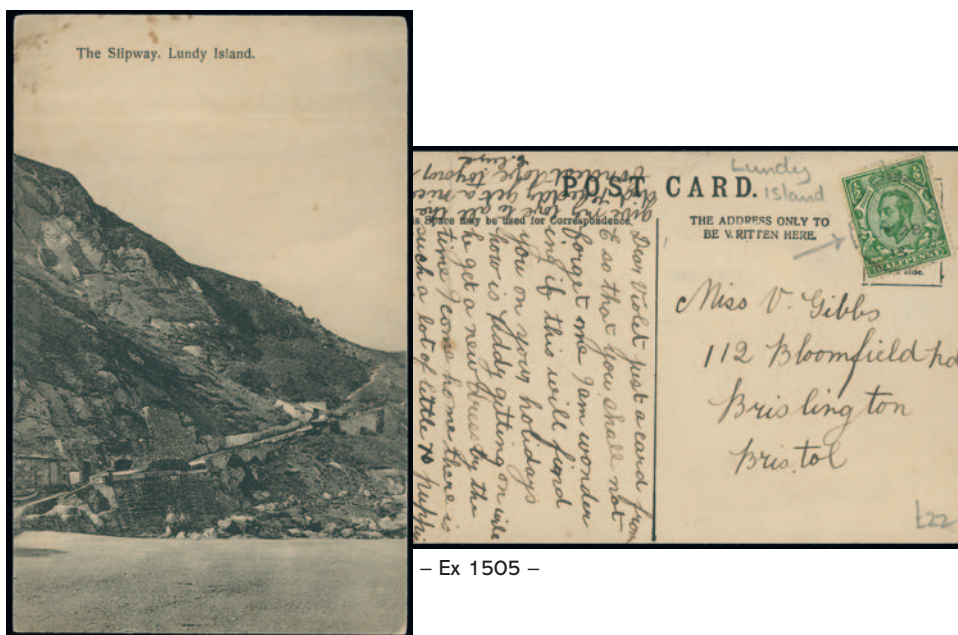 The Slipway. Lundy Island.
POST CARD.
Lundy
Island
Space may be used for Correspondence.
THE ADDRESS ONLY TO
BE WRITTEN HERE.
HALFPENNY
side.
Dear Violet just a card from
so that you shall not
forget me I am wonder
ing if this will find
you on your holidays
how is Tiddy getting on will
he get a new dress by the
time I come home there is
such a lot of little puppi
give my love to all
Miss V. Gibbs
112 Bloomfield Rd
Brislington
Bristol
£22
– Ex 1505 –